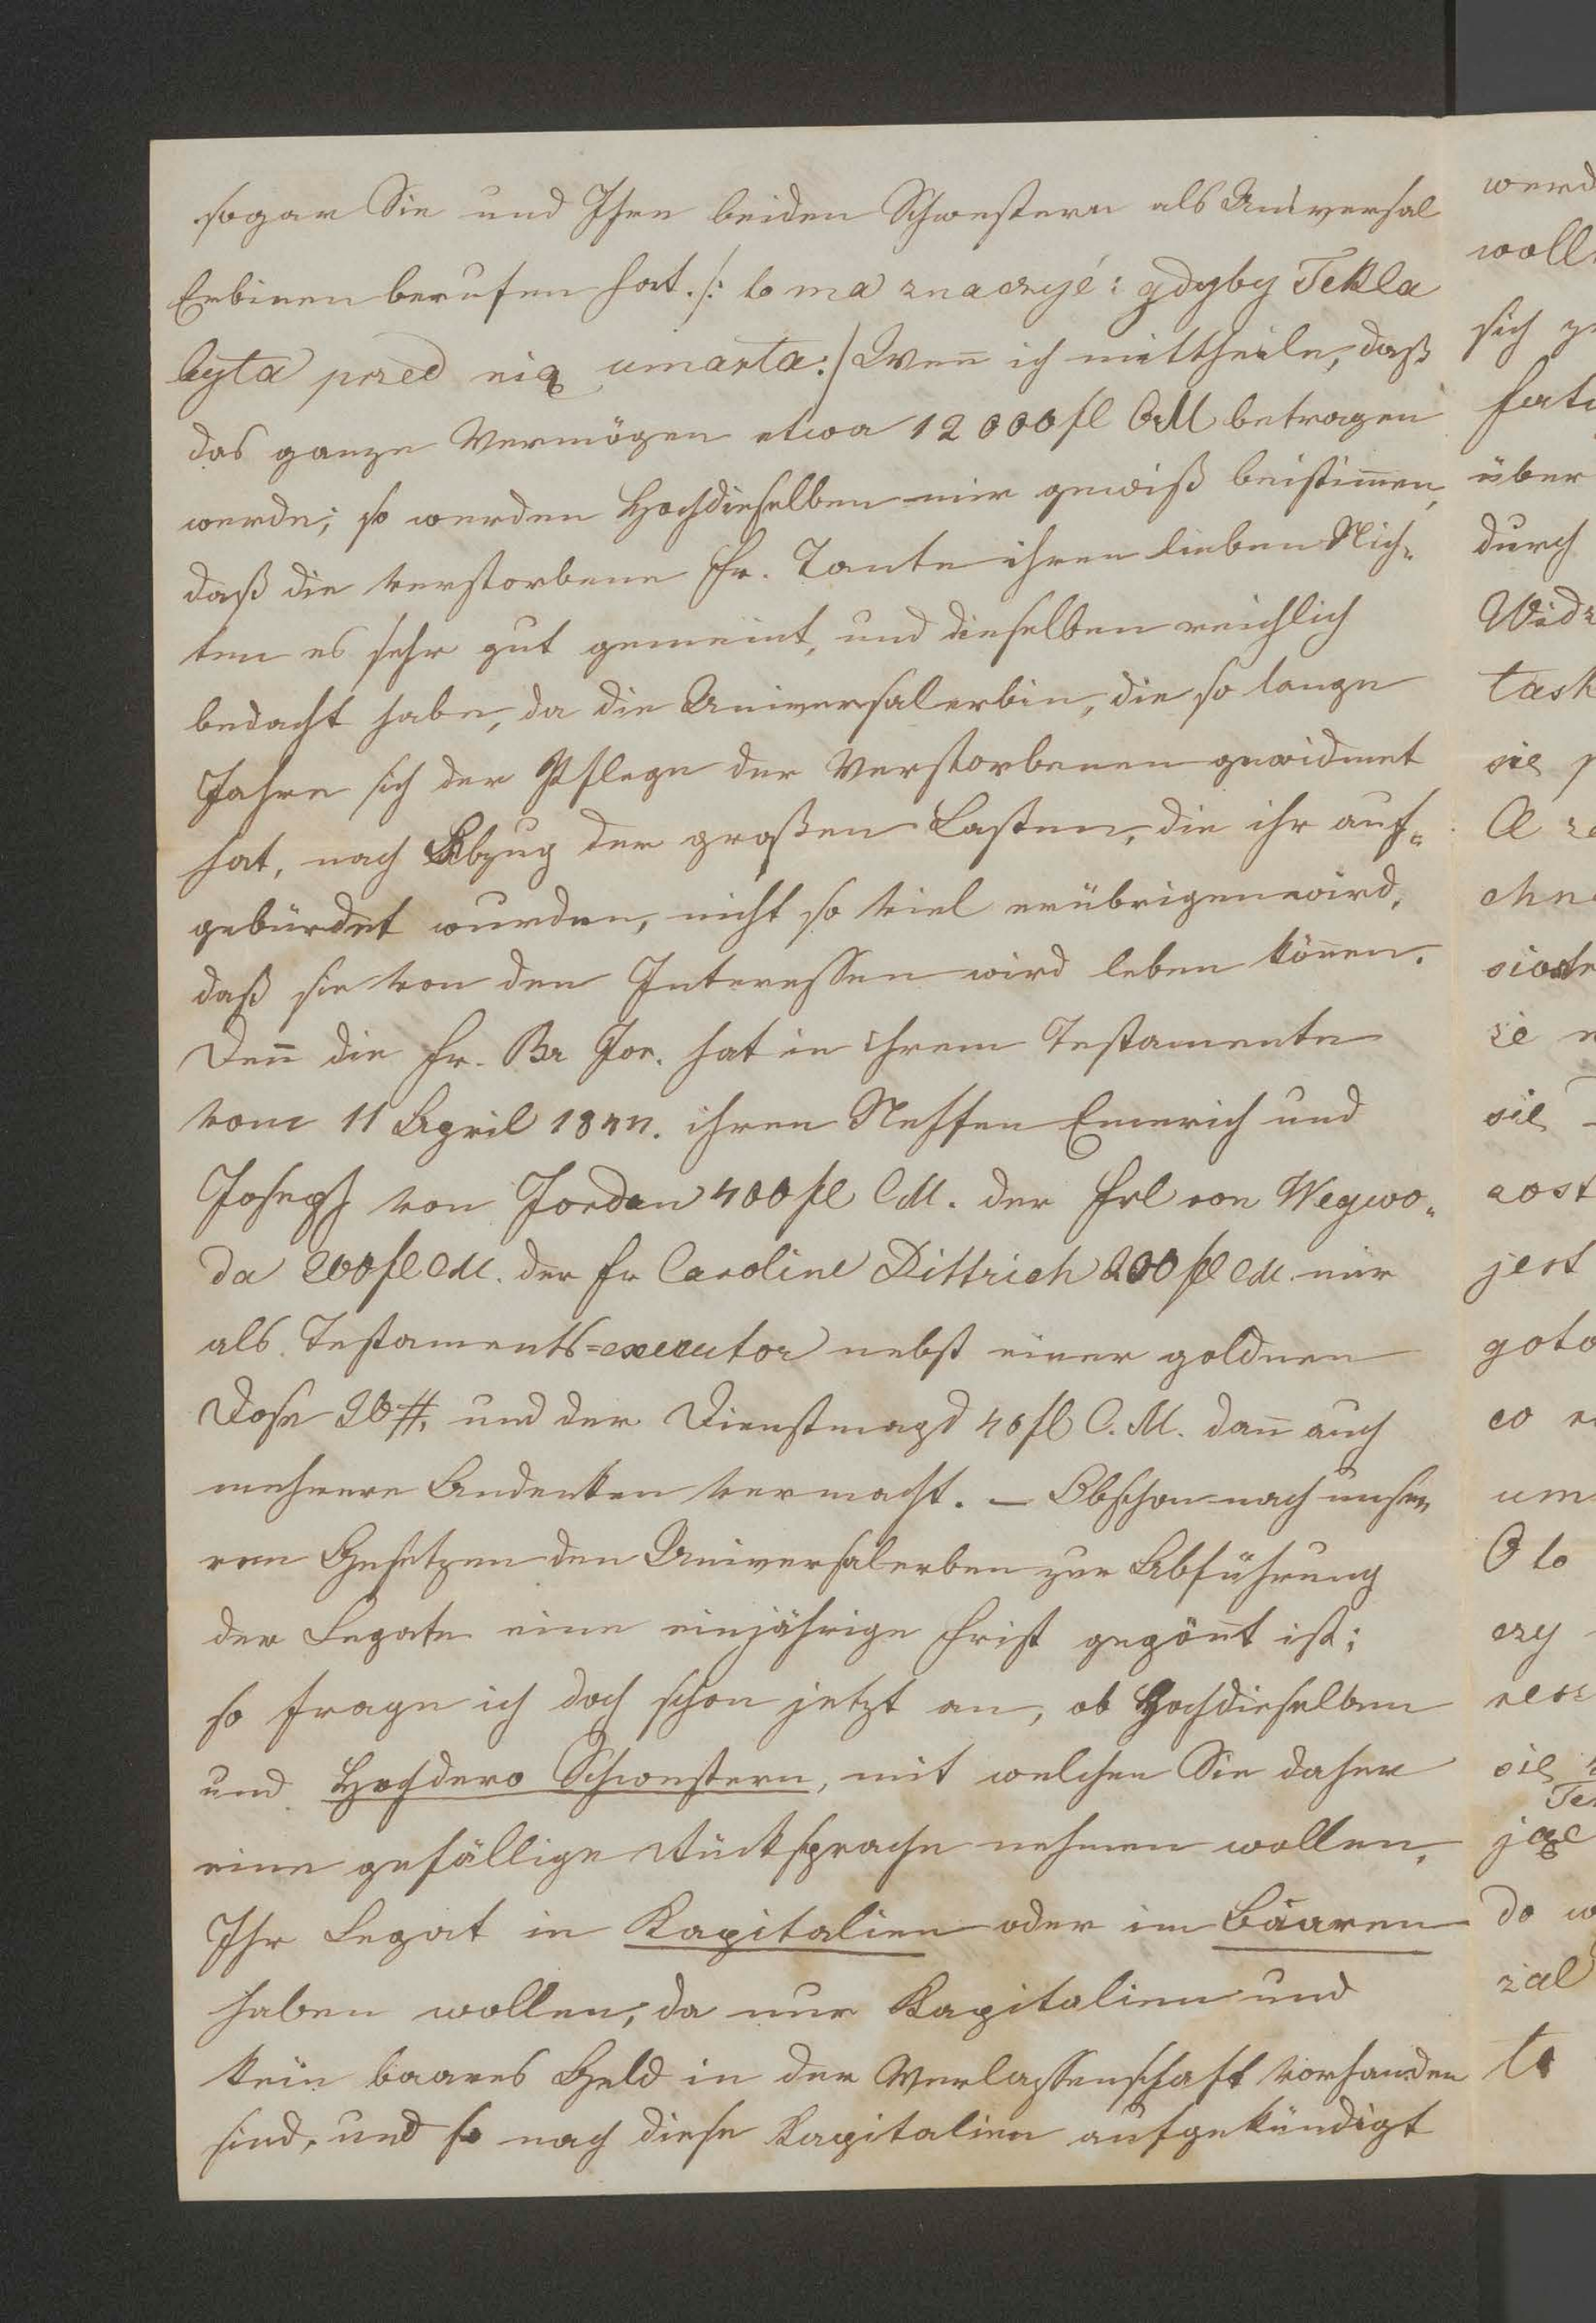 sogar Sie und Ihre beiden Schwestern als Universal
Erbinen berufen hat. /: to ma znaczyć: gdyby Tekla
była przed nią umarła :/ Weñ ich mittheile, daß
das ganze Vermögen etwa 12000 fl CM betragen
werde; so werden Hochdieselben mir gewiß beistim̄en,
daß die verstorbene Fr. Tante ihren lieben Nich=
ten es sehr gut gemeint, und dieselben reichlich
bedacht habe, da die Universalerbin, die so lange
Jahre sich der Pflege der Verstorbenen gewidmet
hat, nach Abzug der großen Lasten, die ihr auf=
gebürdet wurden, nicht so viel erübrigen wird,
daß sie von den Interessen wird leben köñen.
Deñ die Fr. Br Jor. hat in ihrem Testamente
vom 11 April ihren Neffen Emerich und
Joseph von Jordan 400 fl CM. der Frl von Wegwo=
da 200 fl CM. der Fr Caroline Dittrich 200 fl CM. mir
als Testaments=executor nebst einer goldnen
Dose 20 #, und der Dienstmagd 40 fl C.M. dañ auch
mehrere Andenken vermacht. – Obschon nach unse=
ren Gesetzen den Universalerben zur Abführung
der Legate eine einjährige Frist gegöñt ist;
so frage ich doch schon jetzt an, ob Hochdieselben
und Hochdero Schwestern, mit welchen Sie daher
eine gefällige Rücksprache nehmen wollen,
Ihr Legat in Kapitalien oder im Baaren
haben wollen; da nur Kapitalien und
kein baares Geld in der Verlassenschaft vorhanden
sind, und so nach diese Kapitalien aufgekündigt
werd
woll
sich
über
durch
Widz
task
się
sie
aost
jest
goto
co
um
O to
czy
się
jąc
do
żal
to